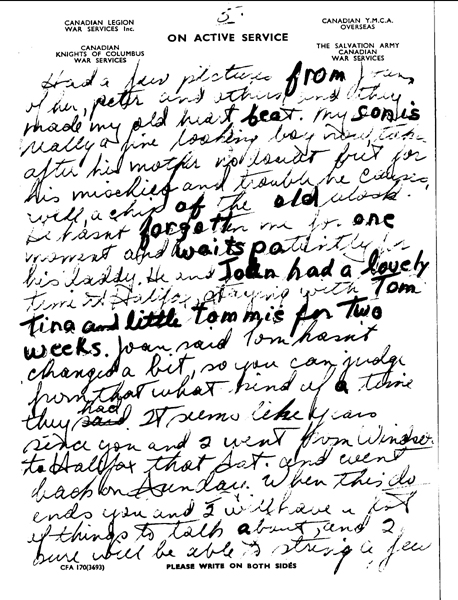 5.
CANADIAN LEGION
WAR SERVICES Inc.
CANADIAN
KNIGHTS OF COLUMBUS
WAR SERVICES
ON ACTIVE SERVICE
CANADIAN Y.M.C.A.
OVERSEAS
THE SALVATION ARMY
CANADIAN
WAR SERVICES
Had a few pictures from Joan,
of her, peter and others and they
made my old heart beat. My son is
really a fine looking boy now, takes
after his mother no doubt but for
his mischief and trouble he causes,
well, a chip of the old block.
He hasnt forgotten me for one
moment and waits patiently for
his daddy. He and Joan had a lovely
time at Halifax staying with Tom
Tina and little Tommie for Two
weeks. Joan said Tom hasn't
changed a bit, so you can judge
from that what kind of a time
they had. It seems like years
since you and I went from Windsor
to Halifax that Sat. and went
back on Sunday. When this do
ends you and I will have a lot
of things to talk about, and I
sure will be able to string a few
CFA 170(3693)
PLEASE WRITE ON BOTH SIDES